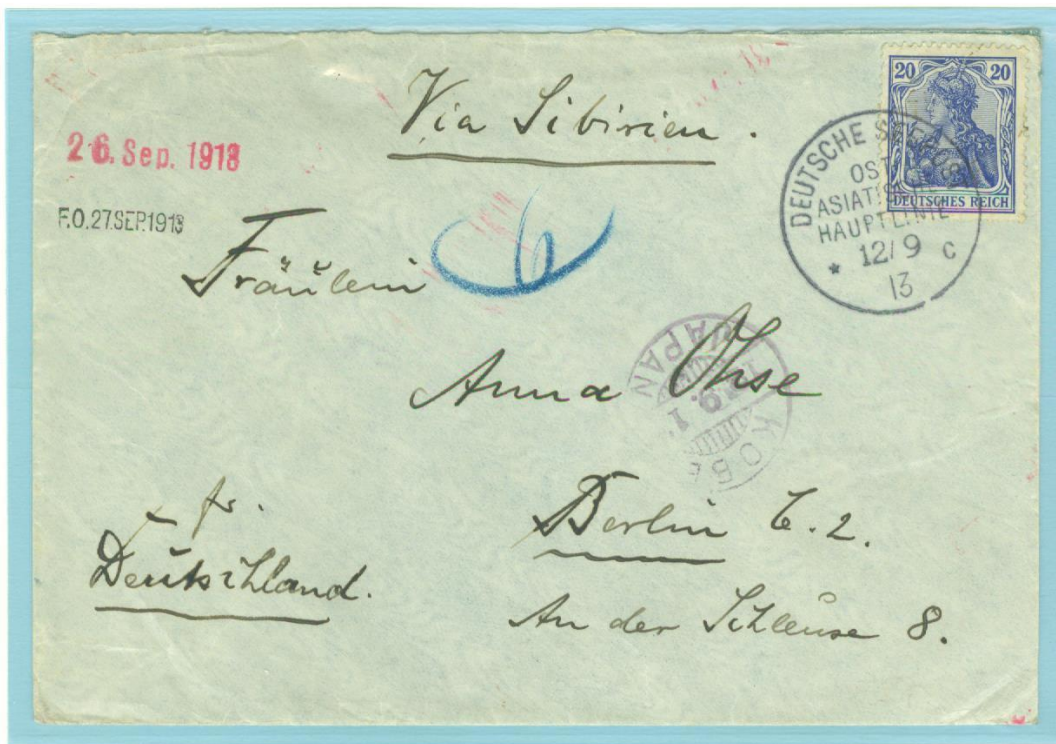 Via Sibirien.
20 20
DEUTSCHES REICH
DEUTSCHE
OST
ASIATISCHE
HAUPTLINIE
* 12/9 c
13
26. Sep. 1913
F.O.27.SEP.1913
Fräulein
Anna Ohse
KOBE
JAPAN
Berlin C.2.
An der Schleuse 8.
fr.
Deutschland.